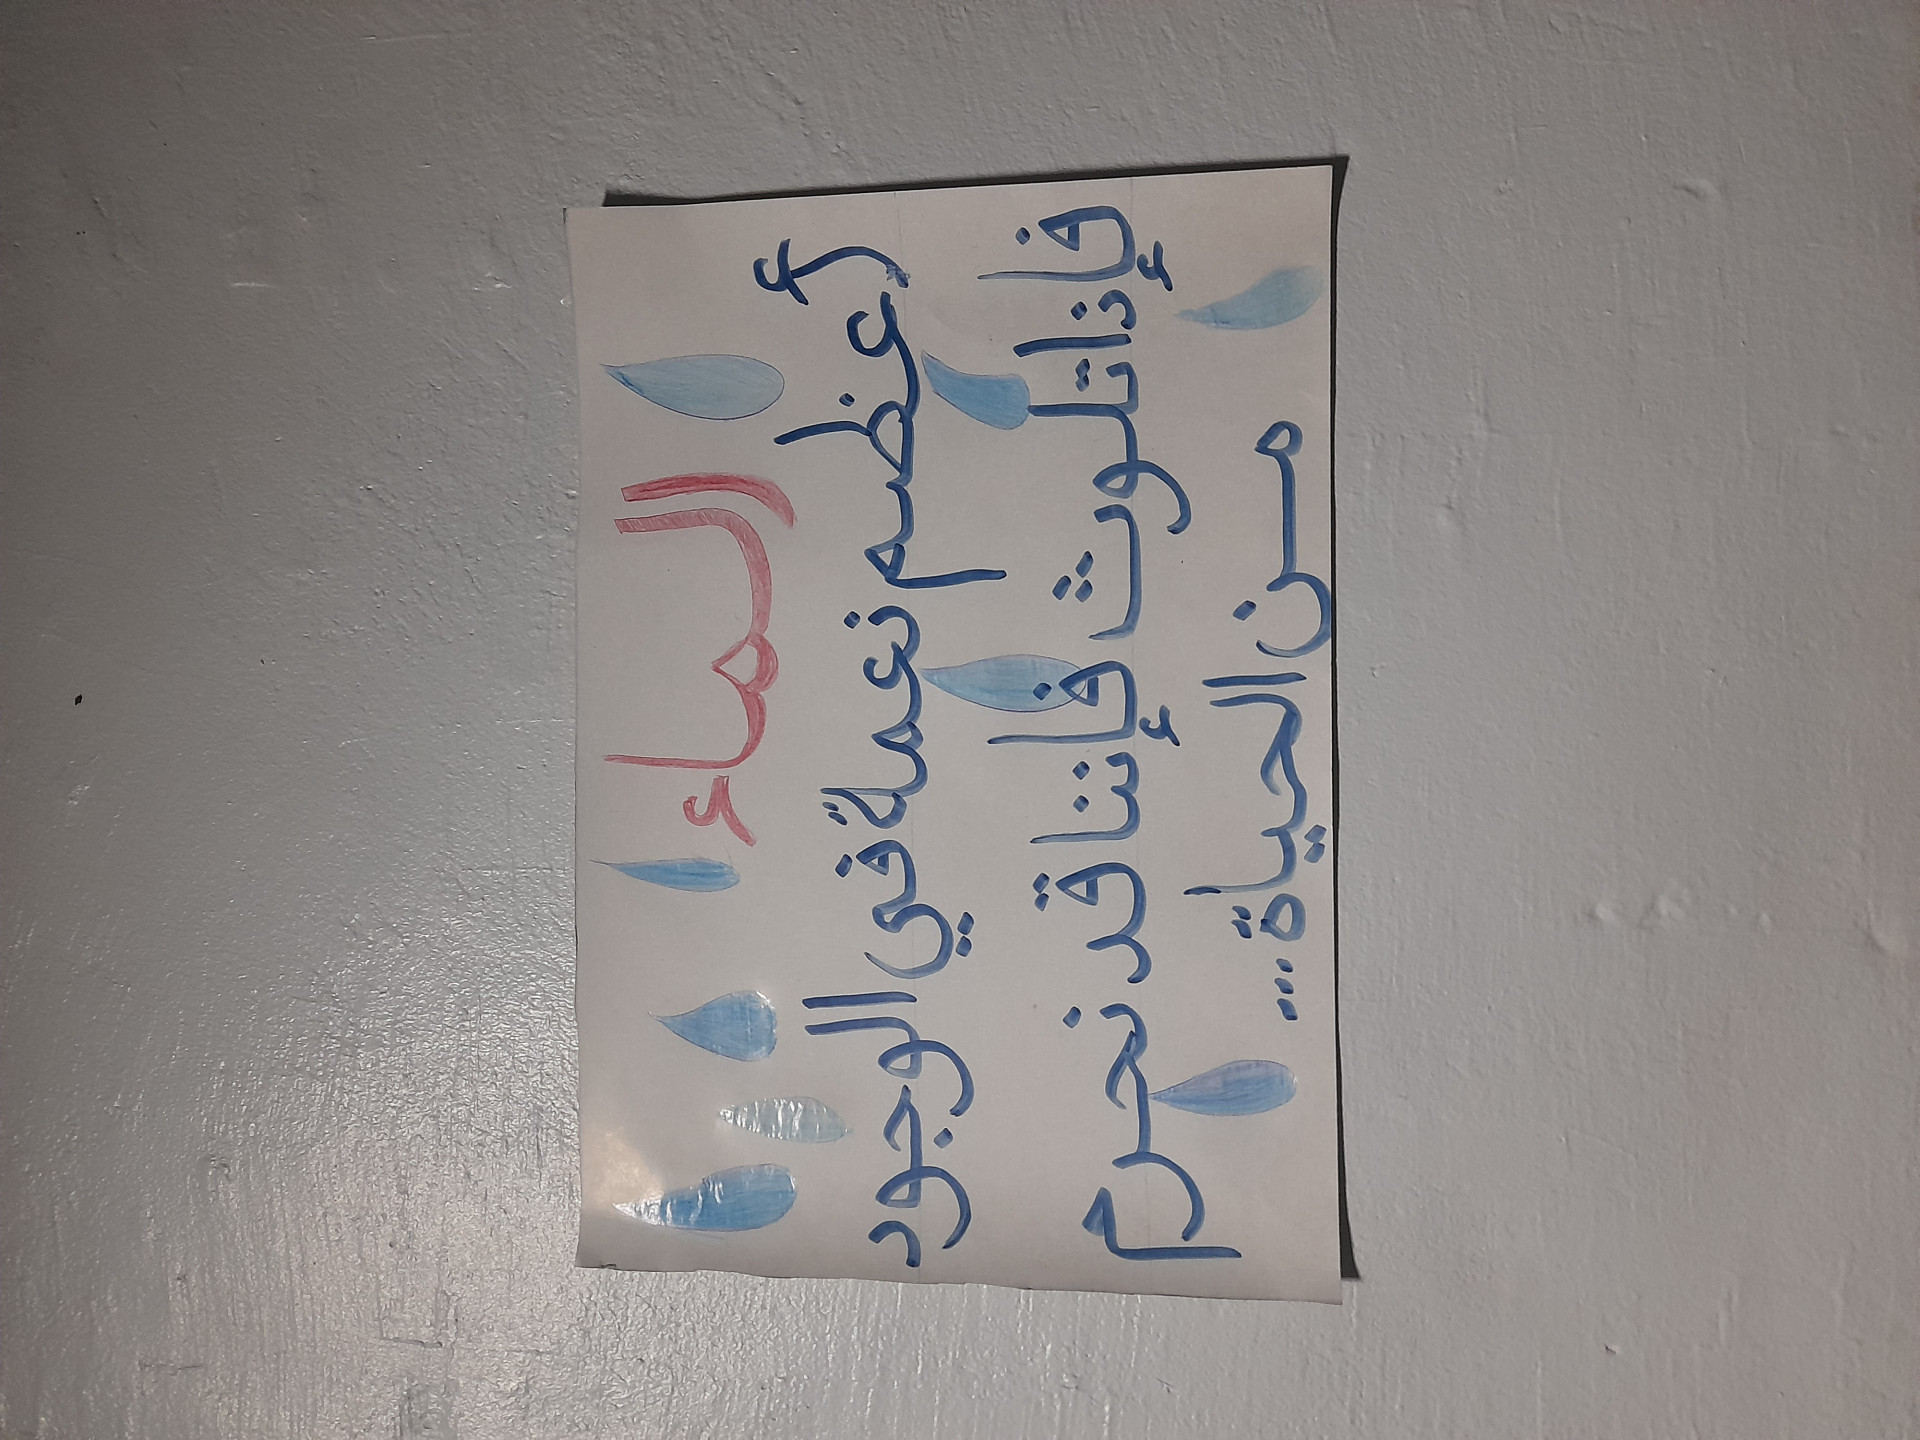 الماء
أعظم نعمة في الوجود
فإذا تلوث فإننا قد نحرم
من الحياة...